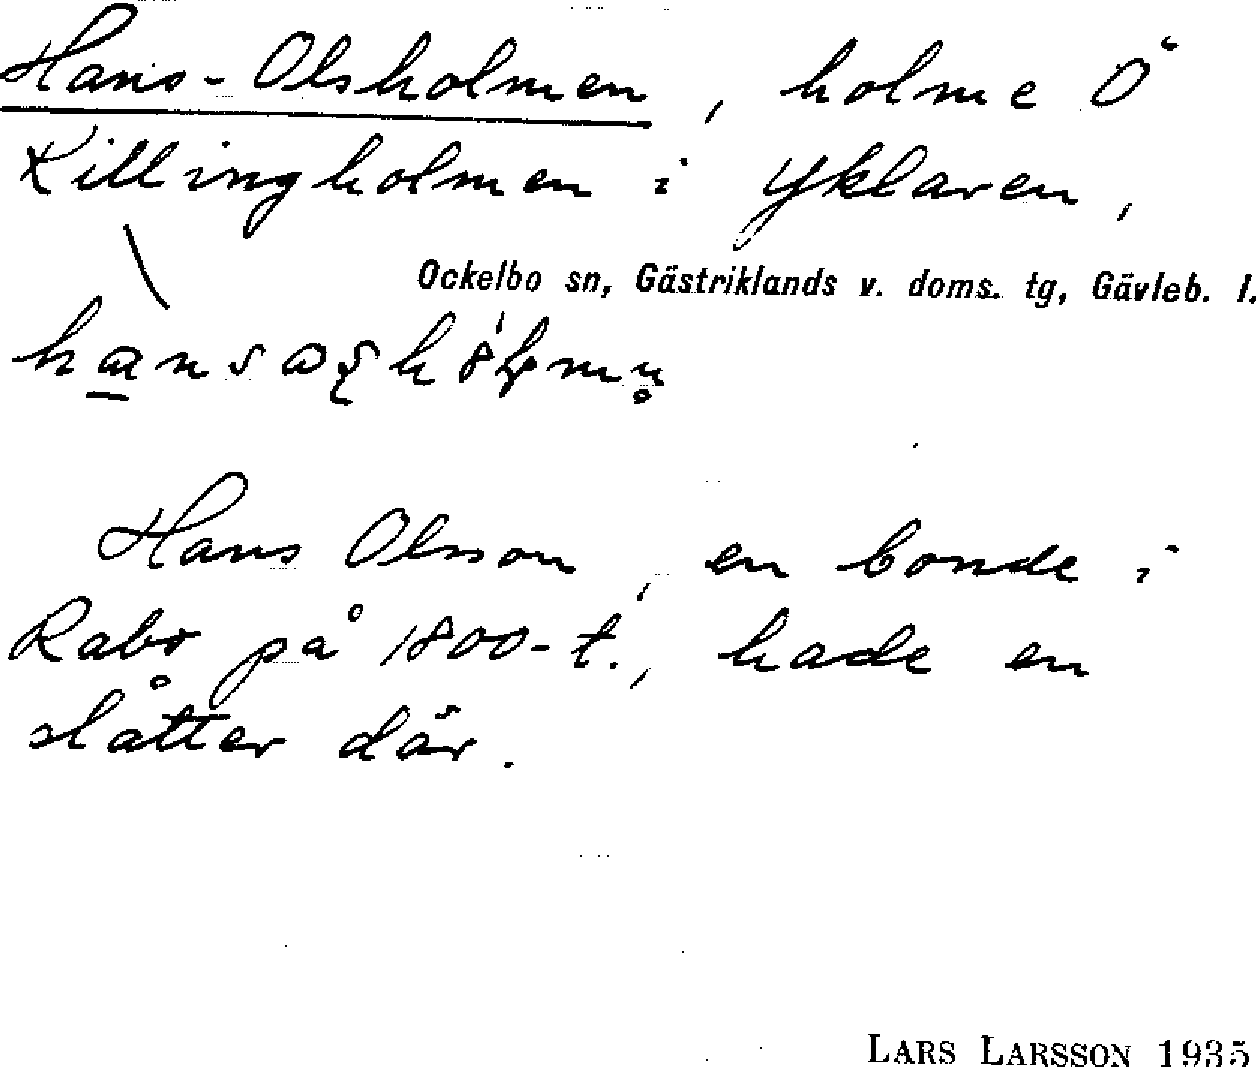 Hans-Olsholmen, holme Ö
Killingholmen i Yklaren,
Ockelbo sn, Gästriklands v. doms. tg, Gävleb. l.
Hans Olsson, en bonde i
Rabo på 1800-t., hade en
slåtter där.
LARS LARSSON 1935